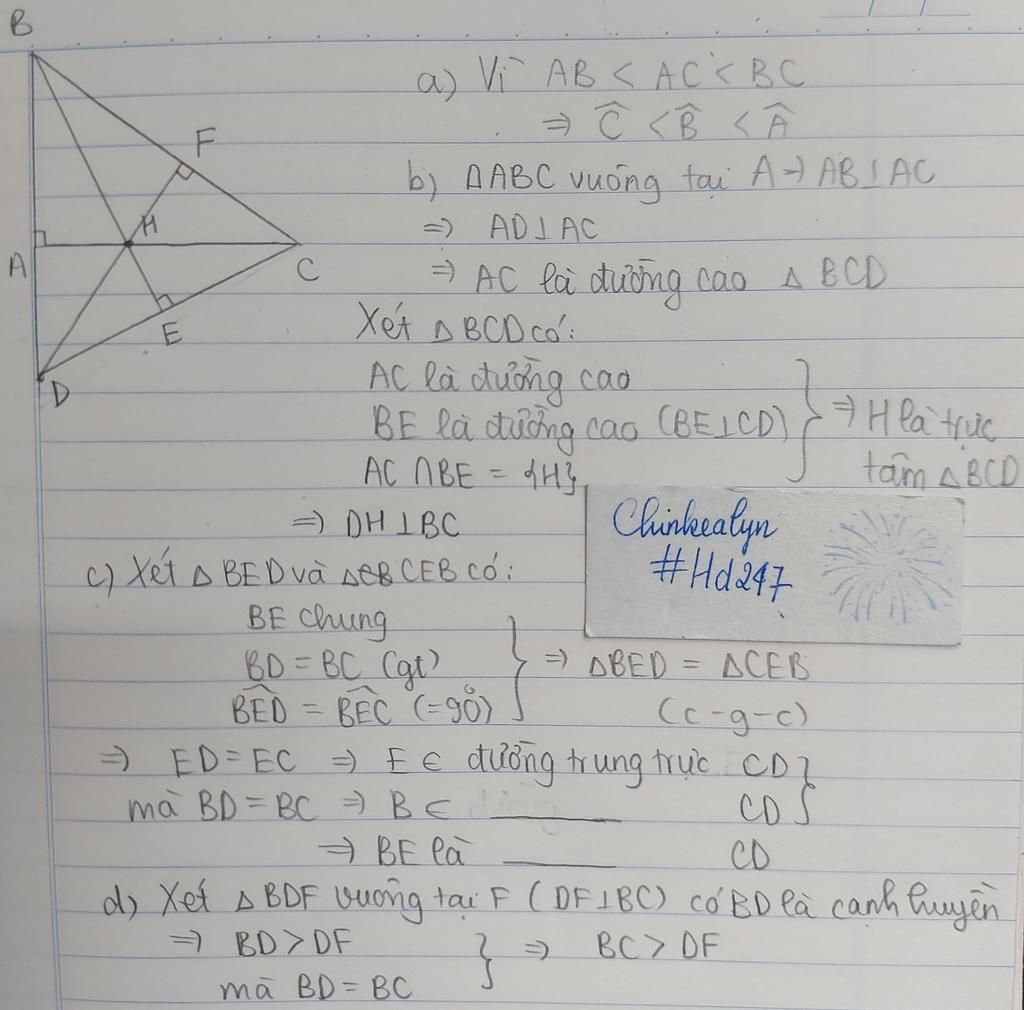 B
F
H
A
C
E
D
a) Vì AB < AC < BC
⇒ Ĉ < B̂ < Â
b) ΔABC vuông tại A ⇒ AB⊥AC
⇒ AD⊥AC
⇒ AC là đường cao Δ BCD
Xét ΔBCD có:
AC là đường cao
BE là đường cao (BE⊥CD)
AC ∩ BE = {H}
⇒ H là trực
tâm ΔBCD
⇒ DH⊥BC
Chinkealyn
#Hd247
c) Xét Δ BED và Δ CEB có:
BE chung
BD = BC (gt)
BED = BEC (=90°)
⇒ ΔBED = ΔCEB
(c-g-c)
⇒ ED = EC ⇒ E ∈ đường trung trực CD
mà BD = BC ⇒ B ∈ ______ CD
⇒ BE là ______ CD
d) Xét Δ BDF vuông tại F (DF⊥BC) có BD là cạnh huyền
⇒ BD > DF
mà BD = BC
⇒ BC > DF